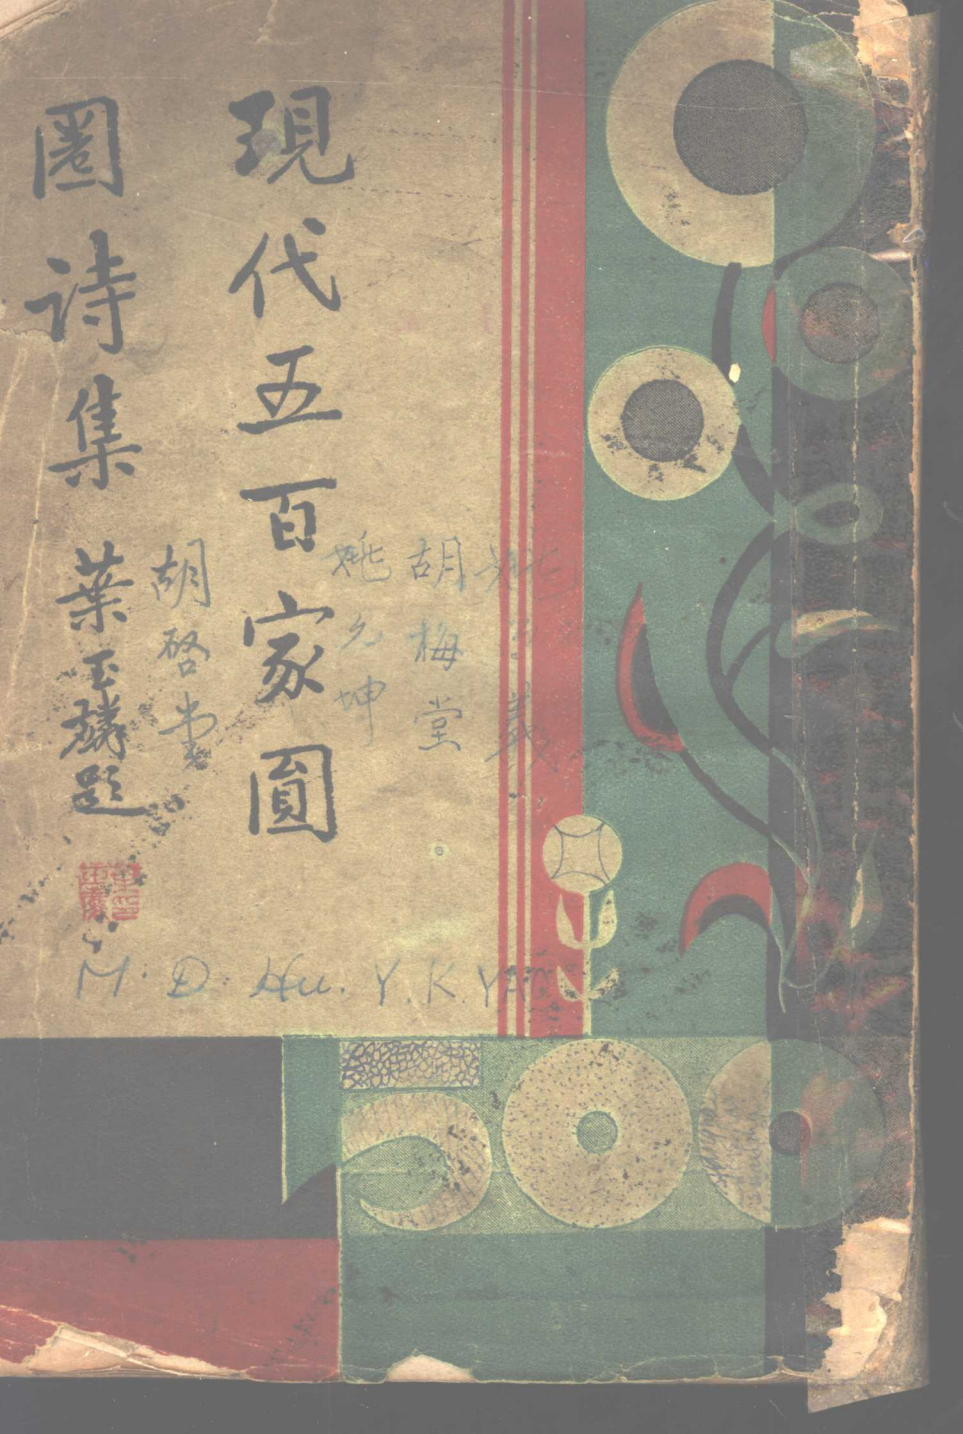 現代五百家圓
圈詩集
葉玉麟題
胡梅堂
姚
坤
胡啓
M. D. Hu. Y. K. YA